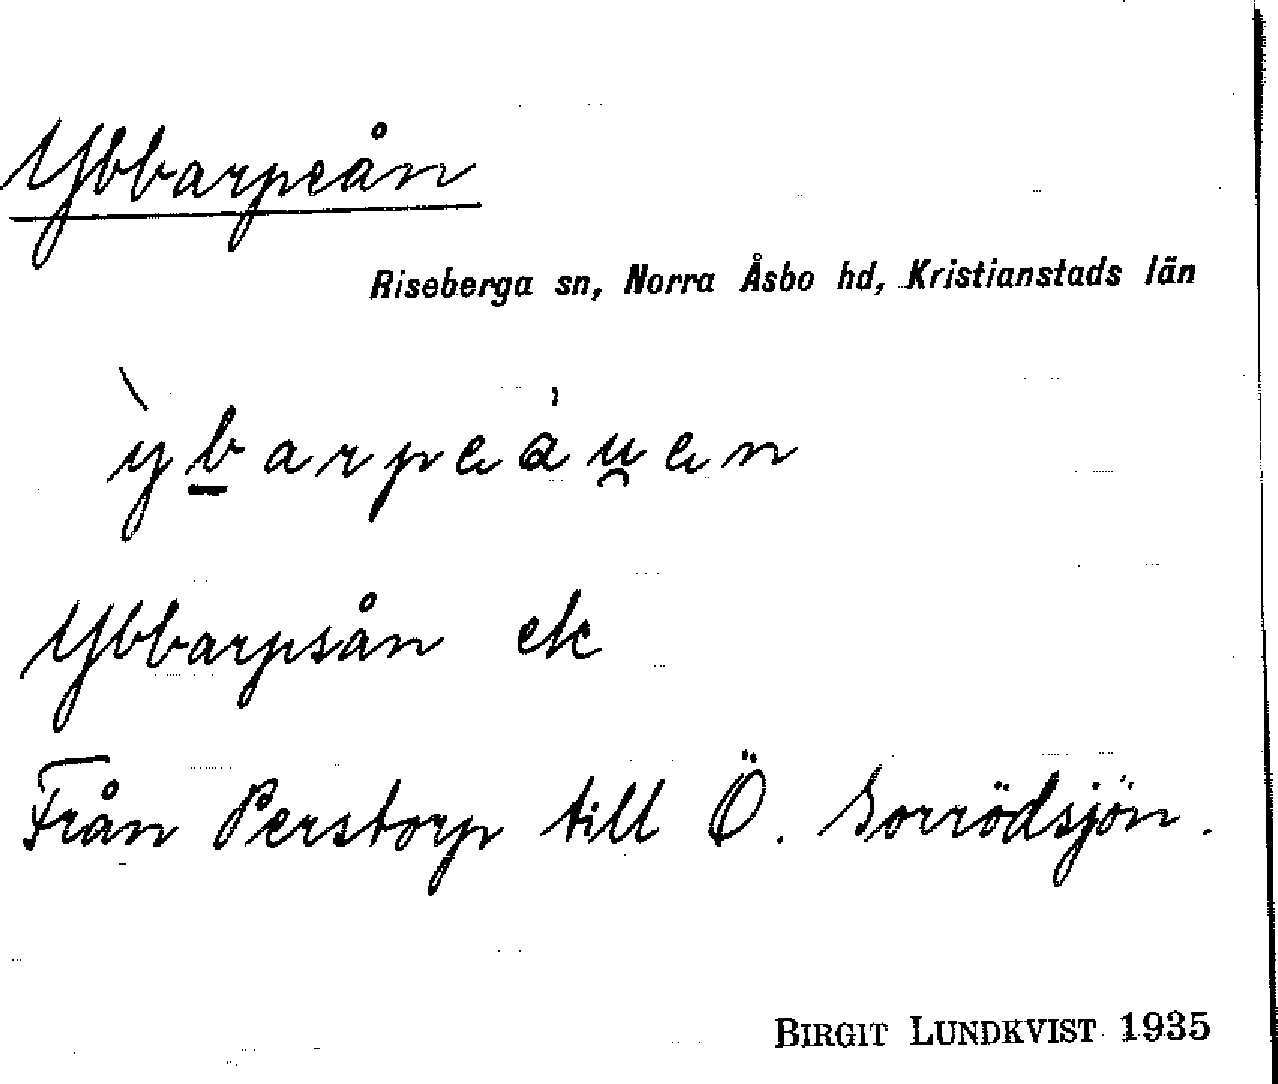 Ybbarpeån
Riseberga sn, Norra Åsbo hd, Kristianstads län
ỳb̲arpeáu̯en
Ybbarpsån ek
Från Perstorp till Ö. Sorrödsjön.
BIRGIT LUNDKVIST 1935